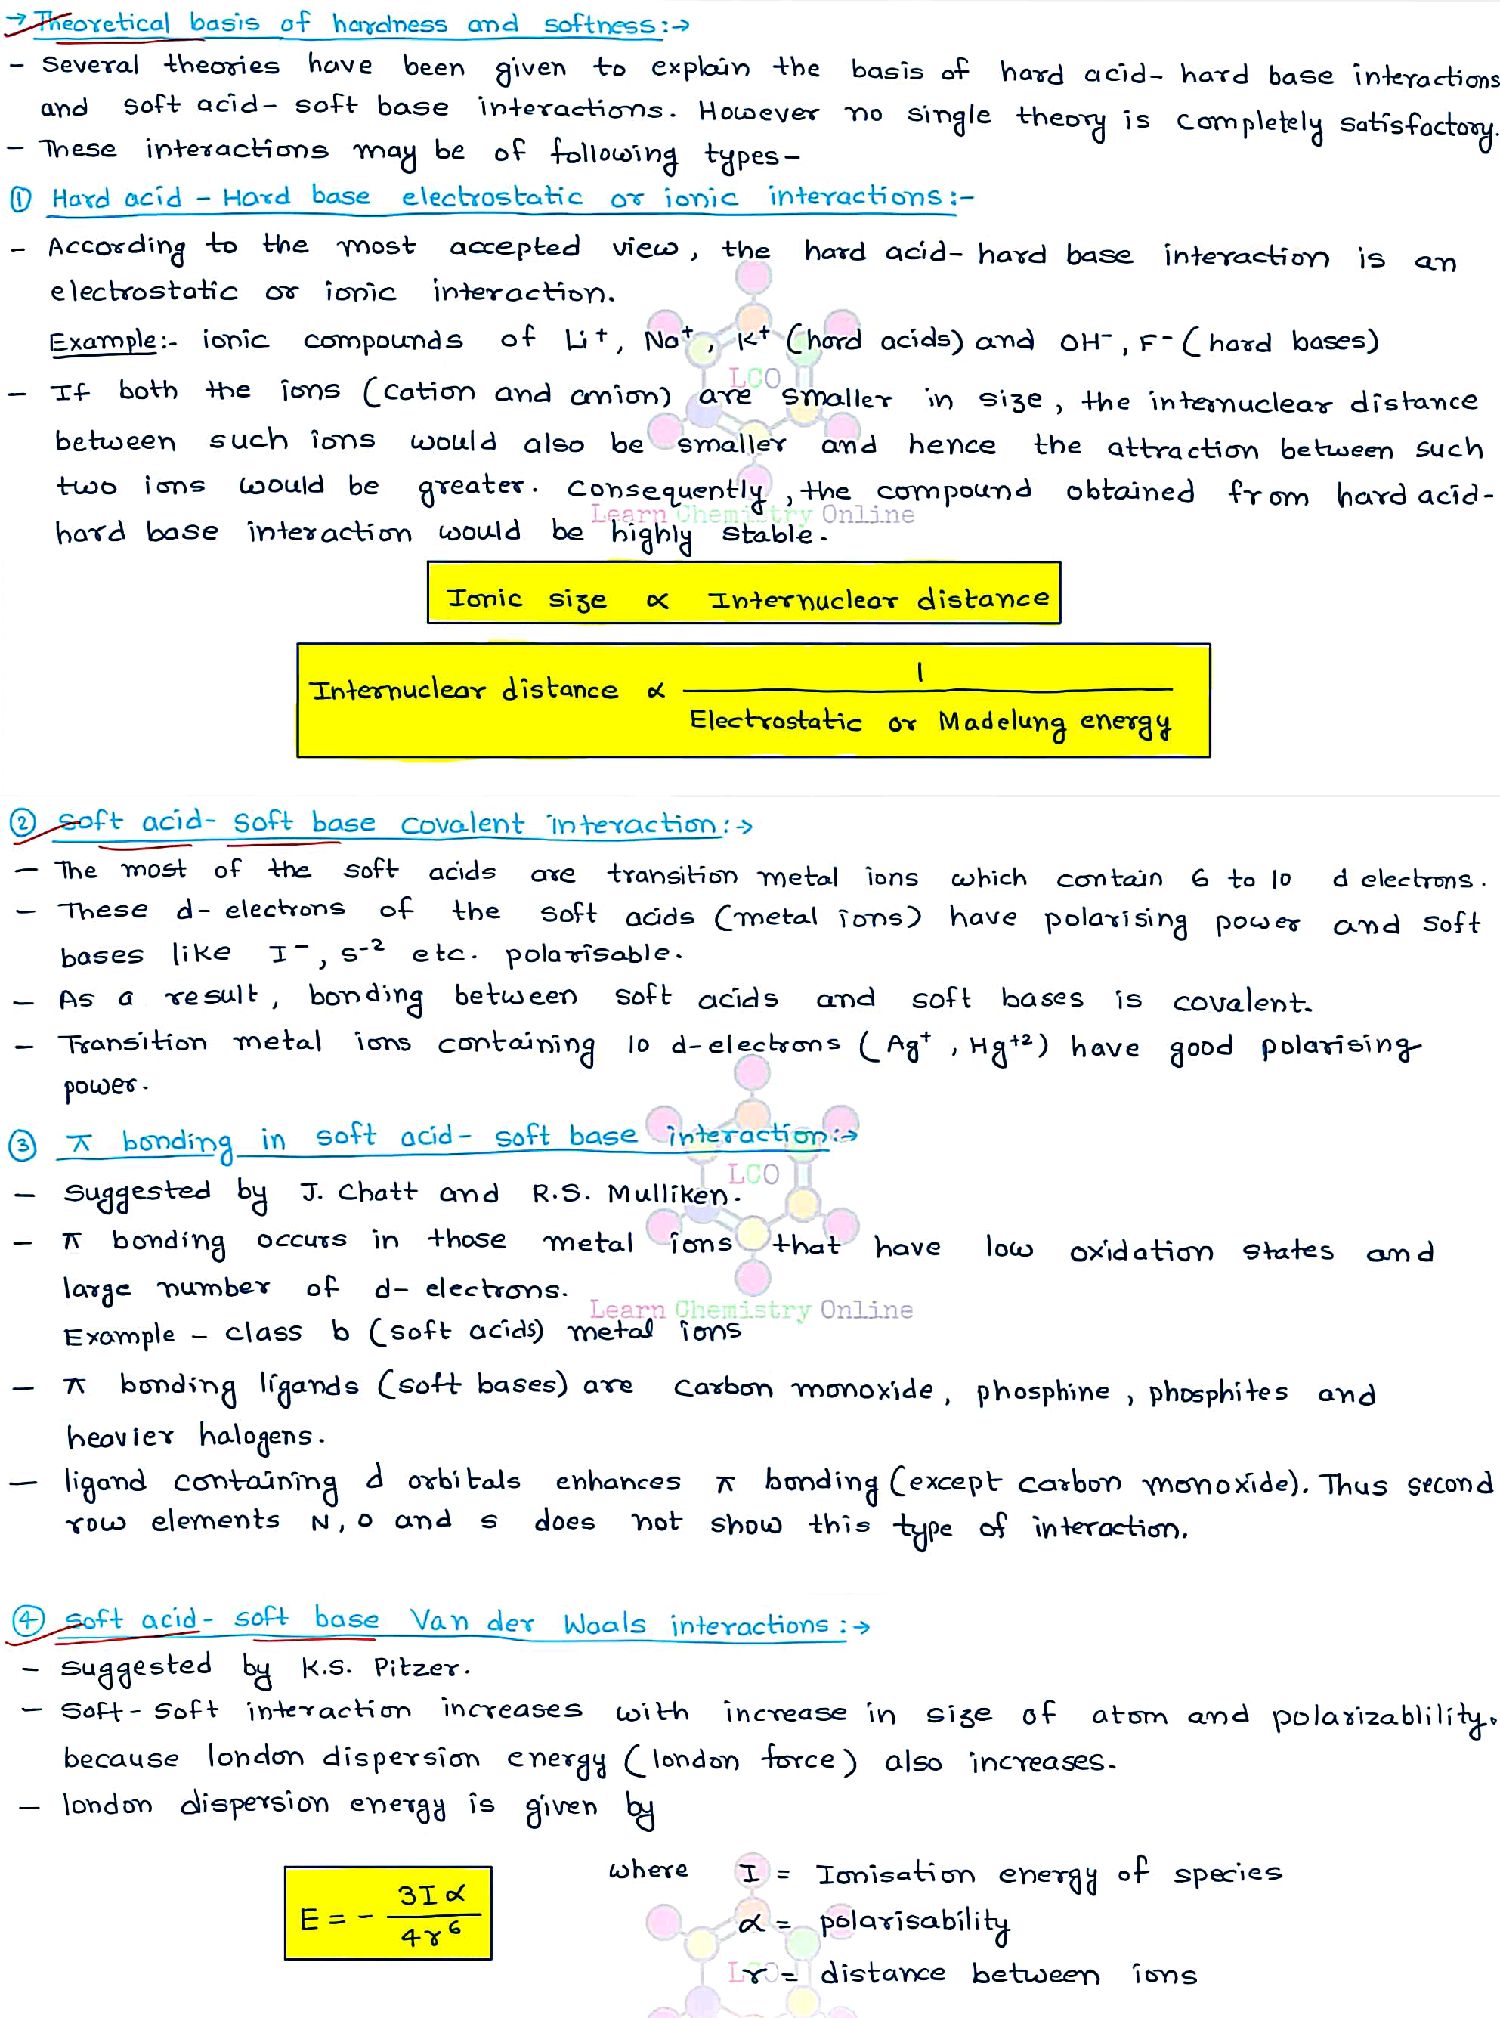 → Theoretical basis of hardness and softness:→
- Several theories have been given to explain the basis of hard acid- hard base interactions
and soft acid- soft base interactions. However no single theory is completely satisfactory.
- These interactions may be of following types-
① Hard acid - Hard base electrostatic or ionic interactions:-
- According to the most accepted view, the hard acid- hard base interaction is an
electrostatic or ionic interaction.
Example:- ionic compounds of Li⁺, Na⁺, K⁺ (hard acids) and OH⁻, F⁻ (hard bases)
LCO
- If both the ions (cation and anion) are smaller in size, the internuclear distance
between such ions would also be smaller and hence the attraction between such
two ions would be greater. Consequently, the compound obtained from hard acid-
Learn Chemistry Online
hard base interaction would be highly stable.
Ionic size ∝ Internuclear distance
Internuclear distance ∝ 1 / Electrostatic or Madelung energy
② Soft acid- Soft base covalent interaction:→
- The most of the soft acids are transition metal ions which contain 6 to 10 d electrons.
- These d-electrons of the soft acids (metal ions) have polarising power and soft
bases like I⁻, S⁻² etc. polarisable.
- As a result, bonding between soft acids and soft bases is covalent.
- Transition metal ions containing 10 d-electrons (Ag⁺, Hg⁺²) have good polarising
power.
③ π bonding in soft acid- soft base interaction:→
LCO
- Suggested by J. Chatt and R.S. Mulliken.
- π bonding occurs in those metal ions that have low oxidation states and
large number of d- electrons.
Learn Chemistry Online
Example - class b (soft acids) metal ions
- π bonding ligands (soft bases) are carbon monoxide, phosphine, phosphites and
heavier halogens.
- ligand containing d orbitals enhances π bonding (except carbon monoxide). Thus second
row elements N, O and S does not show this type of interaction.
④ Soft acid- soft base Van der Waals interactions:→
- Suggested by K.S. Pitzer.
- Soft- Soft interaction increases with increase in size of atom and polarizablility.
because london dispersion energy (london force) also increases.
- london dispersion energy is given by
E = - 3Iα / 4r⁶
where I = Ionisation energy of species
α = polarisability
r = distance between ions
LCO